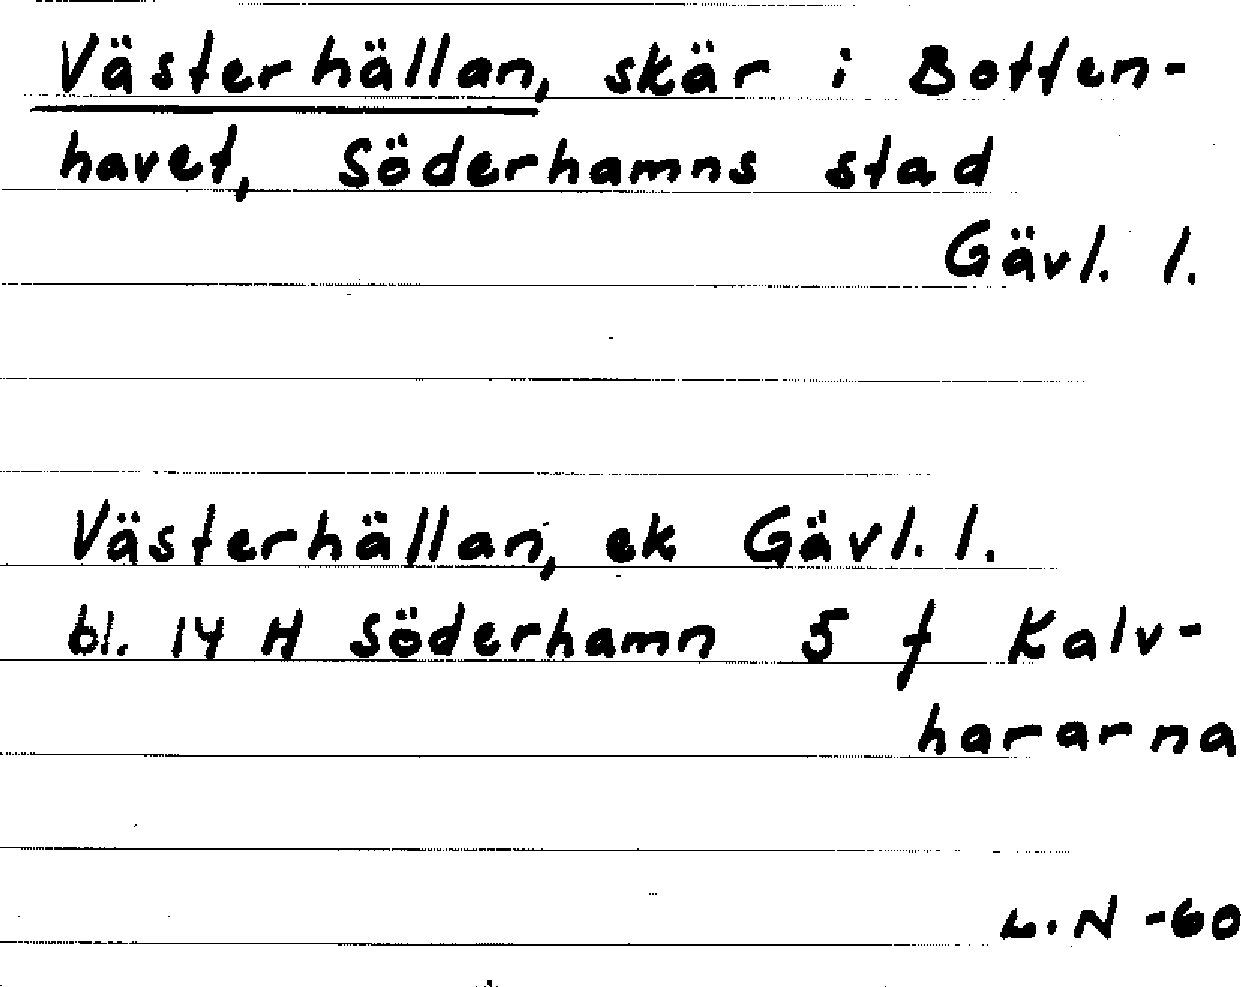 Västerhällan, skär i Botten-
havet, Söderhamns stad
Gävl. l.
Västerhällan, ek Gävl. l.
bl. 14 H Söderhamn 5 f Kalv-
hararna
L.N -60